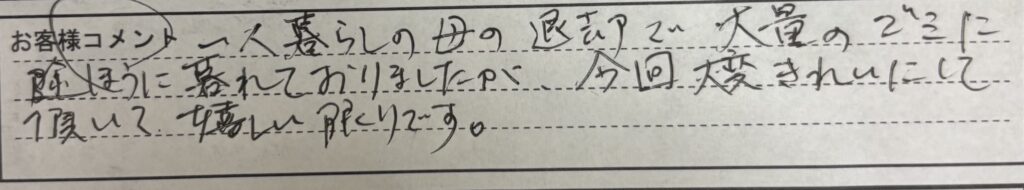 お客様コメント 一人暮らしの母の退却で大量のごミに
ほうに暮れておりましたが、今回大変きれいにして
頂いて嬉しい限りです。